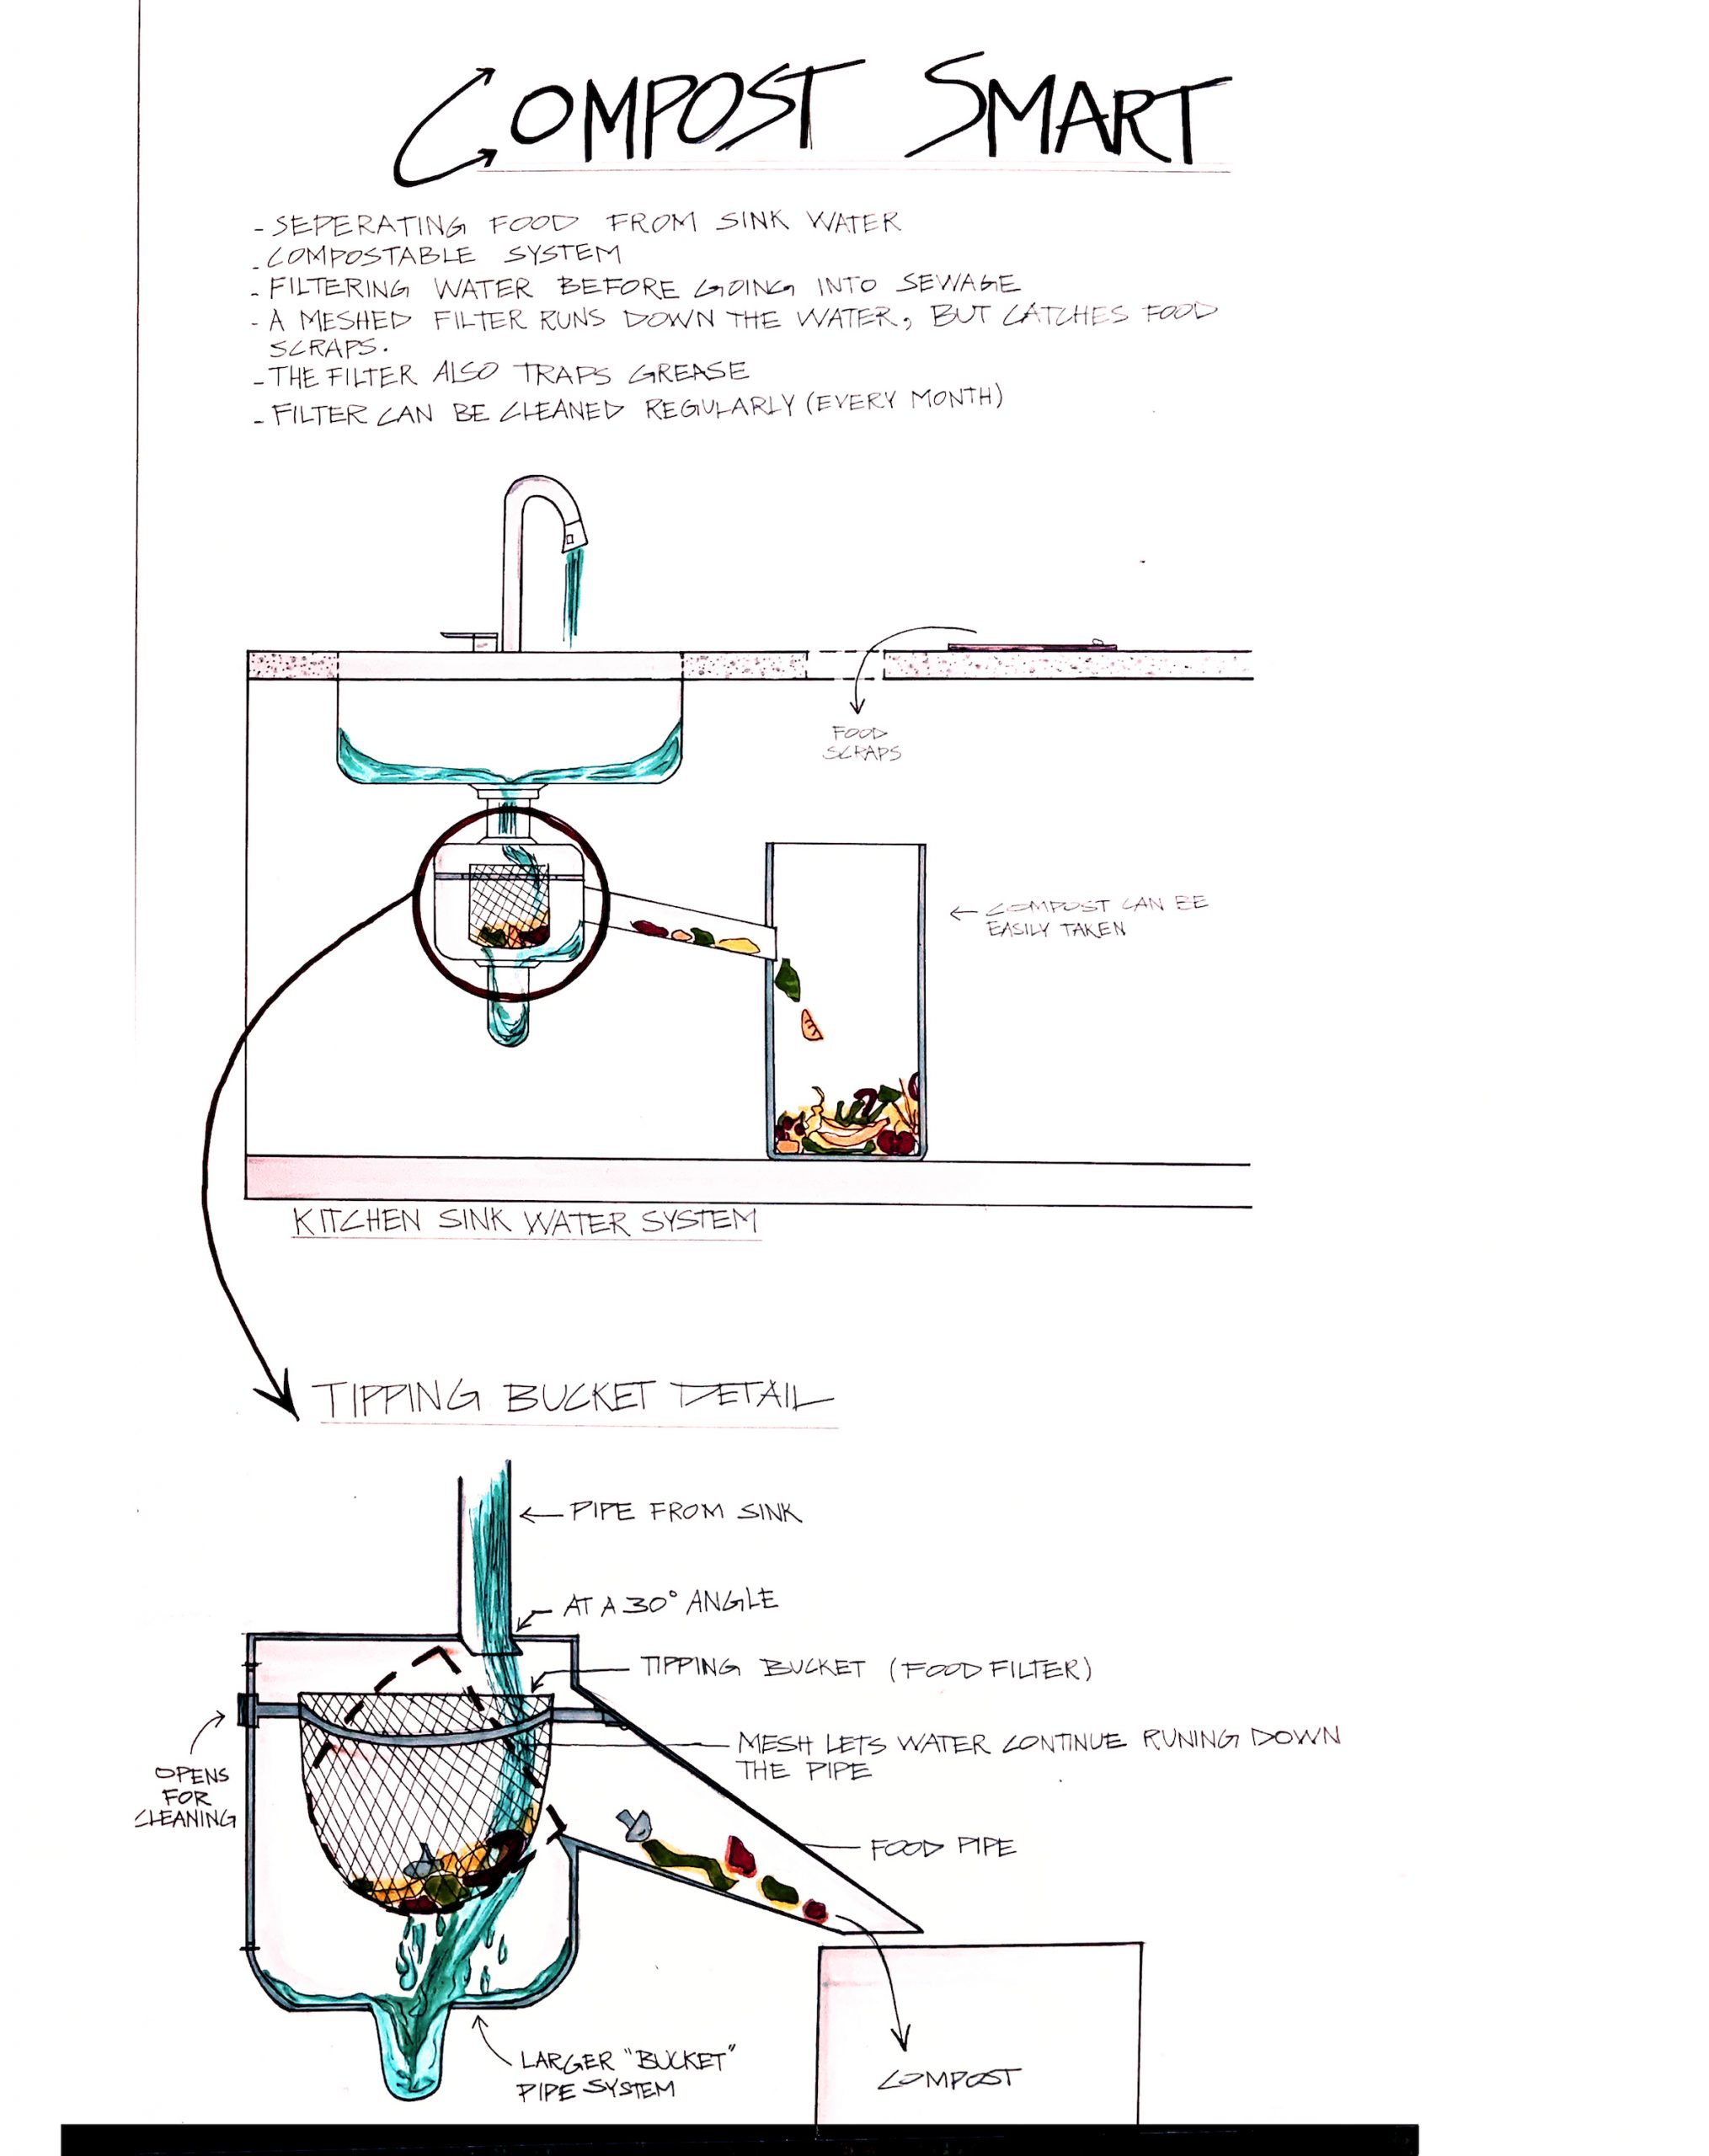 COMPOST SMART
- SEPERATING FOOD FROM SINK WATER
- COMPOSTABLE SYSTEM
- FILTERING WATER BEFORE GOING INTO SEWAGE
- A MESHED FILTER RUNS DOWN THE WATER, BUT CATCHES FOOD
SCRAPS.
- THE FILTER ALSO TRAPS GREASE
- FILTER CAN BE CLEANED REGULARLY (EVERY MONTH)
FOOD
SCRAPS
← COMPOST CAN BE
EASILY TAKEN
KITCHEN SINK WATER SYSTEM
TIPPING BUCKET DETAIL
← PIPE FROM SINK
AT A 30° ANGLE
TIPPING BUCKET (FOOD FILTER)
MESH LETS WATER CONTINUE RUNING DOWN
THE PIPE
OPENS
FOR
CLEANING
FOOD PIPE
LARGER "BUCKET"
PIPE SYSTEM
COMPOST